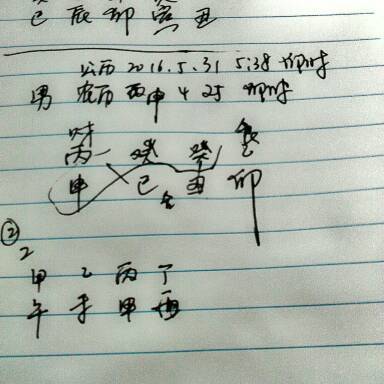 巳 辰 卯 寅 丑
公历 2016.5.31 5:38 卯时
男 农历 丙申 4 25 卯时
丙 癸 癸
申 巳 丑 卯
②
2
甲 乙 丙 丁
午 未 申 酉